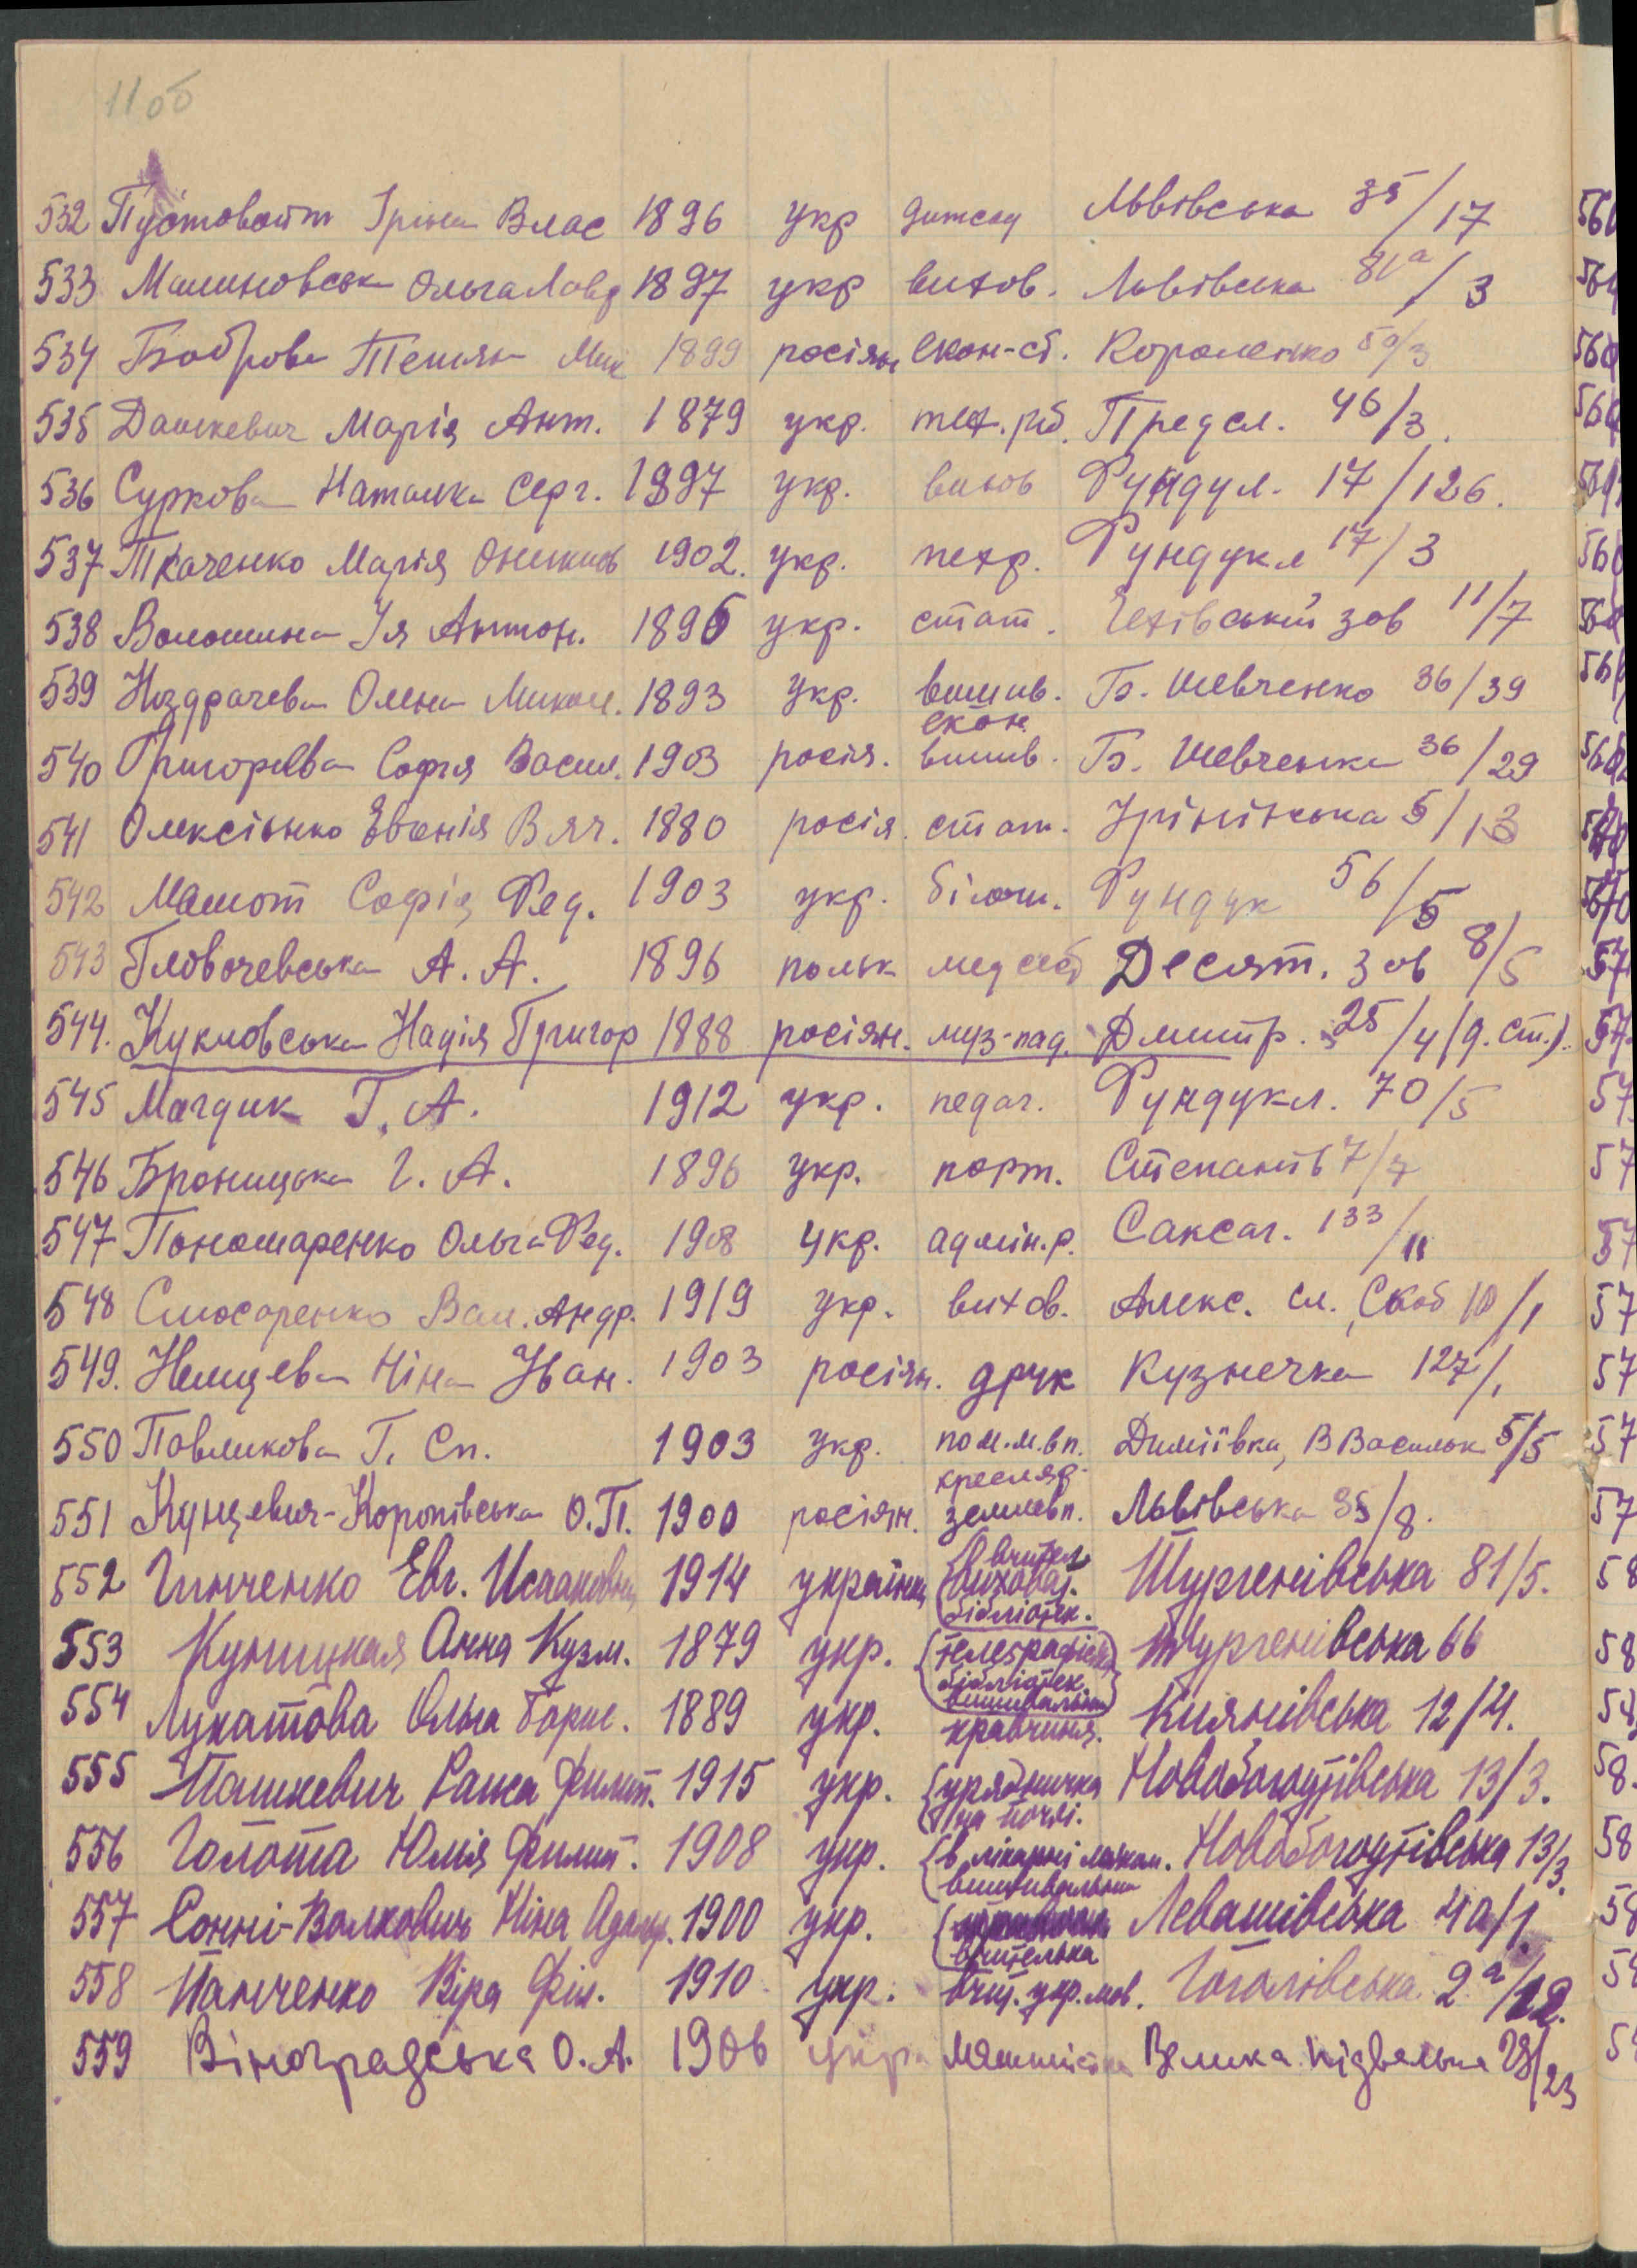 11об
532 Пустовойт Ірина Влас 1896 укр дитсад Львівська 35/17
533 Малиновськ Ольга Лавр 1897 укр вихов. Львівська 81а/3
534 Боброва Тетян Мик 1899 росіян екон-ст. Короленко 50/3
535 Дашкевич Марія Ант. 1879 укр. тех. рб. Предсл. 46/3.
536 Суркова Наталка Серг. 1897 укр. вихов Фундул. 17/126.
537 Ткаченко Марія 1902. укр. Фундукл 17/3
538 Волошина Ія Антон. 1896 укр. стат. Чехівський зов 11/7
539 Ноздрачева Олена Микол. 1893 укр. вишив. Б. Шевченко 36/39
540 Григорєва Софія Васил. 1903 росія. екон. вишив. Б. Шевченка 36/29
541 Олексієнко Евгенія Вяч. 1880 росія. стат. Ірінінська 5/13
542 Мамот Софія Фед. 1903 укр. білош. Фундук 56/5
543 Гловачевська А. А. 1896 польк медсест Десят. зов 8/5
544. Кукловська Надія Григор 1888 росіян. муз-пед. Дмитр. 25/4 (д. ст.).
545 Магдик Г. А. 1912 укр. педаг. Фундукл. 70/5
546 Броницька Г. А. 1896 укр. порт. Степанів 7/7
547 Пономаренко Ольга Фед. 1908 укр. адмін. р. Саксаг. 133/11
548 Слюсаренко Вал. Андр. 1919 укр. вихов. Алекс. сл., Скоб 10/1
549. Немцева Ніна Іван. 1903 росіян. друк Кузнечна 127/1
550 Павликова Г. Сп. 1903 укр. пом. м. вп. Диміївка, В Васильк 5/5
551 Кунцевич-Коропівська О. П. 1900 росіян. кресляр. землевп. Львівська 35/8.
552 Гинченко Евг. Исааковна 1914 українка {вчител. виховат. бібліотек. Тургенівська 81/5.
553 Куницкая Анна Кузм. 1879 укр. {телеграфістк бібліотек вишивальни} Тургенівська 66
554 Лукатова Ольга Борис. 1889 укр. кравчиня. Киянівська 12/4.
555 Пашкевич Раиса Филип. 1915 укр. {урядничка на почті. Новобогоутівська 13/3.
556 Голота Юлія Филип. 1908 укр. {в лікарні вишивальни Новобогоутівська 13/3.
557 Сонні-Волкович Ніна 1900 укр. вчителька Левашівська 4а/1.
558 Панченко Віра Філ. 1910 укр. вчит. укр. мов. Гоголівська 2а/12.
559 Віноградська О. А. 1906 укра Машиністка Велика підвальна 28/23